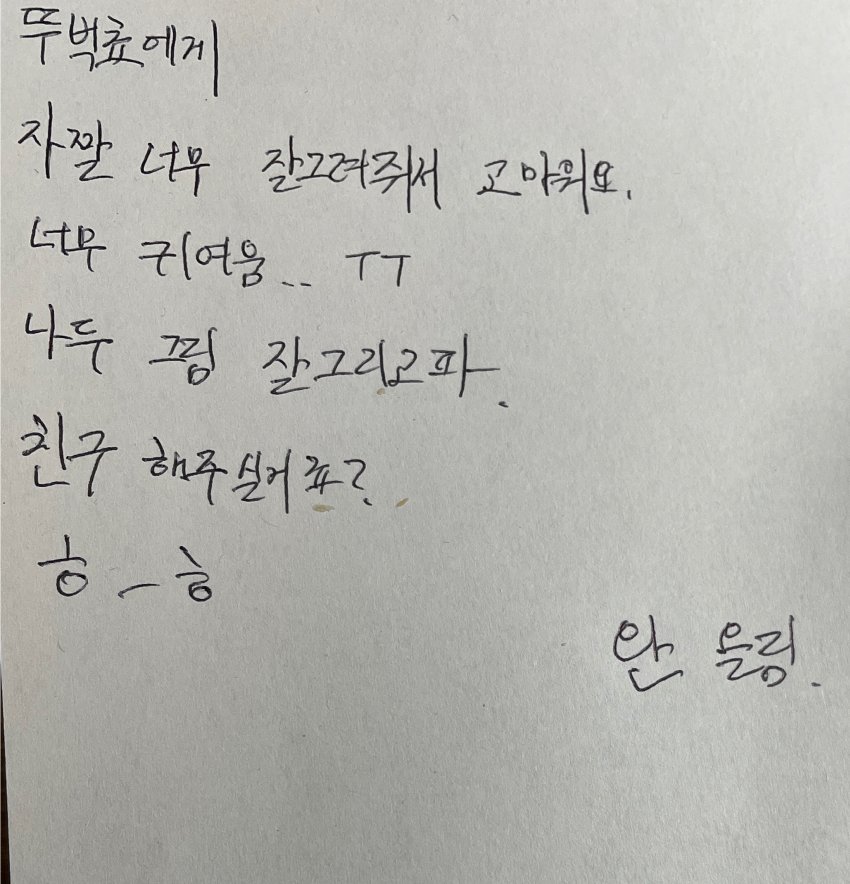 뚜벅쵸에게
자짤 너무 잘그려줘서 고마워요.
너무 귀여움.. ㅜㅜ
나두 끄림 잘그리고파.
친구 해주실어쬬?
ㅎ_ㅎ
안 올림.